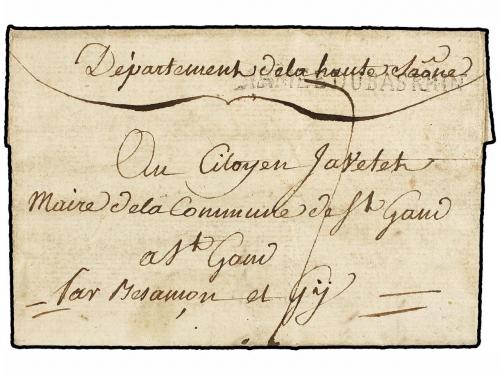 Département de la haute Saône
ARMÉE DU BAS RHIN
7
Au Citoyen Javelet
Maire de la Commune de St Gand
a St Gand
par Besançon et Gÿ